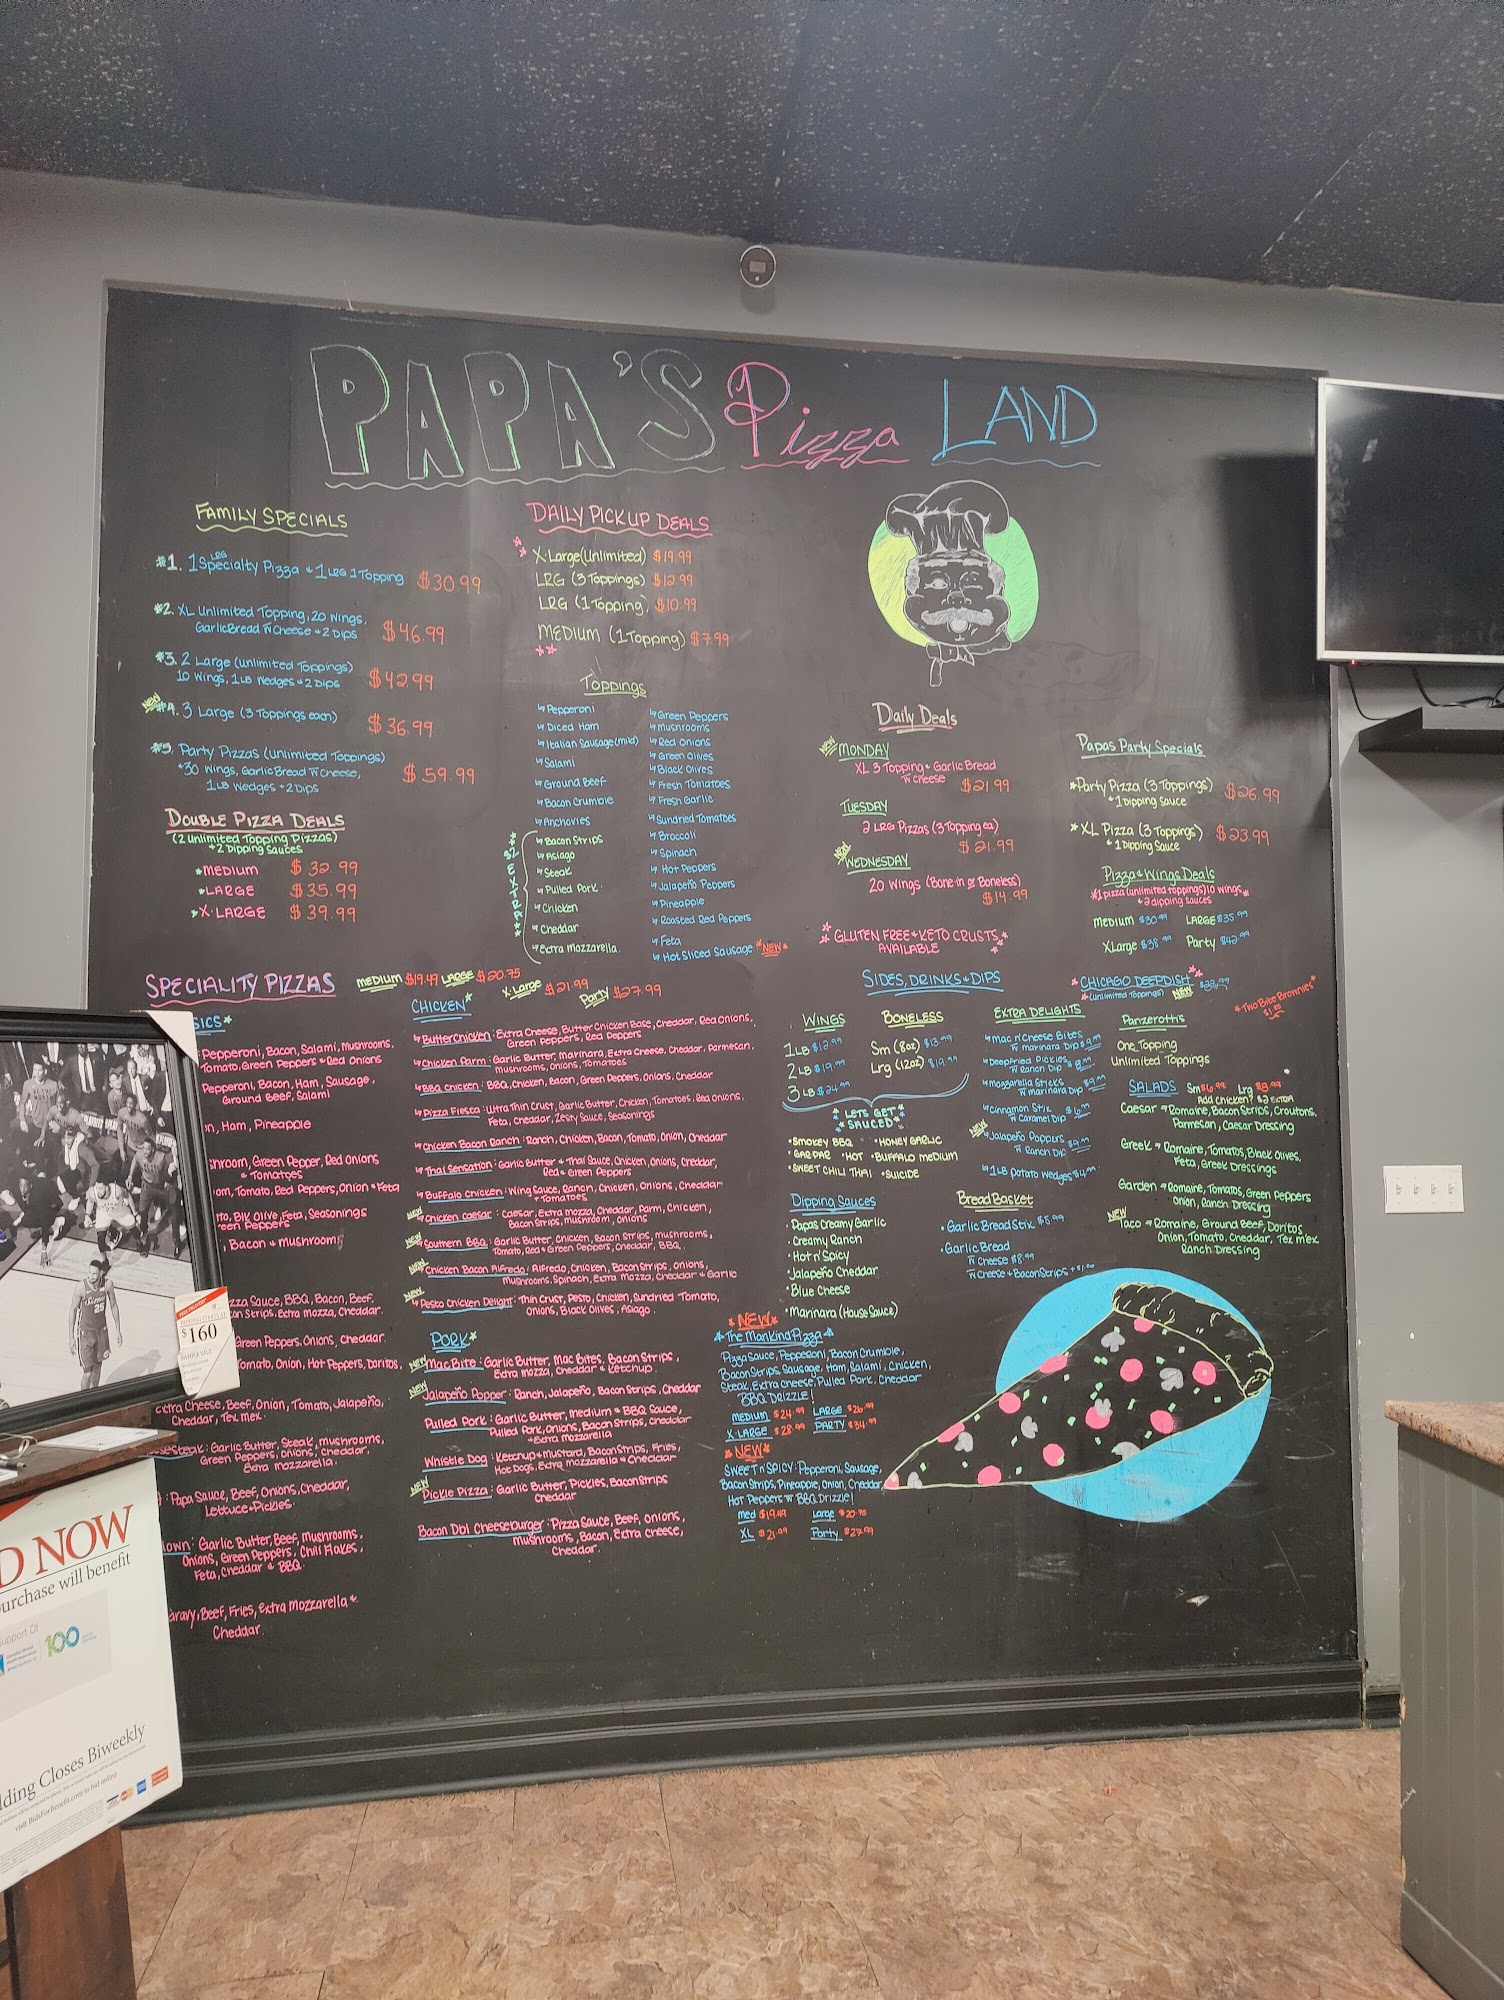 PAPA'S Pizza LAND
FAMILY SPECIALS
#1. 1 LRG Specialty Pizza + 1 LRG 1 Topping $30.99
#2. XL Unlimited Topping, 20 Wings,
Garlic Bread 'N Cheese + 2 Dips $46.99
#3. 2 Large (Unlimited Toppings)
10 Wings, 1LB Wedges + 2 Dips $42.99
NEW
#4. 3 Large (3 Toppings each) $36.99
#5. Party Pizzas (Unlimited Toppings)
30 Wings, Garlic Bread 'N Cheese,
1LB Wedges + 2 Dips $59.99
DOUBLE PIZZA DEALS
(2 Unlimited Topping Pizzas)
+ 2 Dipping Sauces
*MEDIUM $32.99
*LARGE $35.99
*X-LARGE $39.99
DAILY PICKUP DEALS
X-Large (Unlimited) $19.99
LRG (3 Toppings) $12.99
LRG (1 Topping) $10.99
MEDIUM (1 Topping) $7.99
Toppings
Pepperoni
Diced Ham
Italian Sausage (mild)
Salami
Ground Beef
Bacon Crumble
Anchovies
$2 EXTRA
Bacon Strips
Asiago
Steak
Pulled Pork
Chicken
Cheddar
Extra Mozzarella
Green Peppers
Mushrooms
Red Onions
Green Olives
Black Olives
Fresh Tomatoes
Fresh Garlic
Sundried Tomatoes
Broccoli
Spinach
Hot Peppers
Jalapeño Peppers
Pineapple
Roasted Red Peppers
Feta
Hot Sliced Sausage *NEW*
Daily Deals
NEW
MONDAY
XL 3 Topping + Garlic Bread
'N Cheese $21.99
TUESDAY
2 LRG Pizzas (3 Topping ea)
$21.99
NEW
WEDNESDAY
20 Wings (Bone-in or Boneless)
$14.99
GLUTEN FREE + KETO CRUSTS
AVAILABLE
Papas Party Specials
*Party Pizza (3 Toppings)
+ 1 Dipping Sauce $26.99
*XL Pizza (3 Toppings)
+ 1 Dipping Sauce $23.99
Pizza + Wings Deals
*1 pizza (unlimited toppings) 10 wings
+ 2 dipping sauces
MEDIUM $30.99 LARGE $35.99
XLarge $38.99 Party $42.99
*CHICAGO DEEPDISH
(Unlimited Toppings) NEW
*Two Bite Brownies*
SPECIALITY PIZZAS
MEDIUM $19.49 LARGE $20.75
X-Large $21.99 Party $27.99
SICS*
Pepperoni, Bacon, Salami, Mushrooms,
Tomato, Green Peppers + Red Onions
Pepperoni, Bacon, Ham, Sausage,
Ground Beef, Salami
n, Ham, Pineapple
shroom, Green Pepper, Red Onions
+ Tomatoes
om, Tomato, Red Peppers, Onion + Feta
to, Blk Olive, Feta, Seasonings
reen Peppers
, Bacon + Mushrooms
zza Sauce, BBQ, Bacon, Beef,
on Strips, Extra Mozza, Cheddar.
Green Peppers, Onions, Cheddar.
Tomato, Onion, Hot Peppers, Doritos,
Extra Cheese, Beef, Onion, Tomato, Jalapeño,
Cheddar, Tex Mex.
esesteak: Garlic Butter, Steak, Mushrooms,
Green Peppers, Onions, Cheddar,
Extra Mozzarella.
: Papa Sauce, Beef, Onions, Cheddar,
Lettuce + Pickles.
own: Garlic Butter, Beef, Mushrooms,
Onions, Green Peppers, Chili Flakes,
Feta, Cheddar + BBQ.
Gravy, Beef, Fries, Extra Mozzarella +
Cheddar.
CHICKEN*
Butter Chicken: Extra Cheese, Butter Chicken Base, Cheddar, Red Onions,
Green Peppers, Red Peppers
Chicken Parm: Garlic Butter, Marinara, Extra Cheese, Cheddar, Parmesan,
Mushrooms, Onions, Tomatoes
BBQ Chicken: BBQ, Chicken, Bacon, Green Peppers, Onions, Cheddar
Pizza Fiesta: Ultra Thin Crust, Garlic Butter, Chicken, Tomatoes, Red Onions,
Feta, Cheddar, Zesty Sauce, Seasonings
Chicken Bacon Ranch: Ranch, Chicken, Bacon, Tomato, Onion, Cheddar
Thai Sensation: Garlic Butter + Thai Sauce, Chicken, Onions, Cheddar,
Red + Green Peppers
Buffalo Chicken: Wing Sauce, Ranch, Chicken, Onions, Cheddar
+ Tomatoes
NEW
Chicken Caesar: Caesar, Extra Mozza, Cheddar, Parm, Chicken,
Bacon Strips, Mushroom, Onions
NEW
Southern BBQ: Garlic Butter, Chicken, Bacon Strips, Mushrooms,
Tomato, Red + Green Peppers, Cheddar, BBQ.
NEW
Chicken Bacon Alfredo: Alfredo, Chicken, Bacon Strips, Onions,
Mushrooms, Spinach, Extra Mozza, Cheddar + Garlic
NEW
Pesto Chicken Delight: Thin Crust, Pesto, Chicken, Sundried Tomato,
Onions, Black Olives, Asiago.
PORK*
NEW
Mac Bite: Garlic Butter, Mac Bites, Bacon Strips,
Extra Mozza, Cheddar + Ketchup
NEW
Jalapeño Popper: Ranch, Jalapeño, Bacon Strips, Cheddar
Pulled Pork: Garlic Butter, Medium + BBQ Sauce,
Pulled Pork, Onions, Bacon Strips, Cheddar
+ Extra Mozzarella
Whistle Dog: Ketchup + Mustard, Bacon Strips, Fries,
Hot Dogs, Extra Mozzarella + Cheddar
NEW
Pickle Pizza: Garlic Butter, Pickles, Bacon Strips
Cheddar
Bacon Dbl Cheeseburger: Pizza Sauce, Beef, Onions,
Mushrooms, Bacon, Extra Cheese,
Cheddar.
SIDES, DRINKS + DIPS
WINGS
1LB $12.99
2LB $19.99
3LB $24.99
BONELESS
Sm (8oz) $13.99
Lrg (12oz) $19.99
LETS GET
SAUCED
•SMOKEY BBQ •HONEY GARLIC
•GARPAR •HOT •BUFFALO MEDIUM
•SWEET CHILI THAI •SUICIDE
Dipping Sauces
•Papas Creamy Garlic
•Creamy Ranch
•Hot n' Spicy
•Jalapeño Cheddar
•Blue Cheese
•Marinara (House Sauce)
EXTRA DELIGHTS
Mac n' Cheese Bites
'N Marinara Dip
Deepfried Pickles
'N Ranch Dip
Mozzarella Sticks
'N Marinara Dip
Cinnamon Stix
'N Caramel Dip
NEW
Jalapeño Poppers
'N Ranch Dip
1LB Potato Wedges
Bread Basket
•Garlic Bread Stix $5.99
•Garlic Bread
'N Cheese $8.99
'N Cheese + Bacon Strips
Panzerottis
One Topping
Unlimited Toppings
SALADS Sm $6.99 Lrg $8.99
Add Chicken? $2 EXTRA
Caesar Romaine, Bacon Strips, Croutons,
Parmesan, Caesar Dressing
Greek Romaine, Tomatoes, Black Olives,
Feta, Greek Dressings
Garden Romaine, Tomatoes, Green Peppers
Onion, Ranch Dressing
NEW
Taco Romaine, Ground Beef, Doritos
Onion, Tomato, Cheddar, Tex Mex
Ranch Dressing
*NEW*
The Mankind Pizza
Pizza Sauce, Pepperoni, Bacon Crumble,
Bacon Strips, Sausage, Ham, Salami, Chicken,
Steak, Extra Cheese, Pulled Pork, Cheddar
BBQ Drizzle!
MEDIUM $24.99 LARGE $26.99
X-LARGE $28.99 PARTY $34.99
*NEW*
SWEET n' SPICY: Pepperoni, Sausage,
Bacon Strips, Pineapple, Onion, Cheddar,
Hot Peppers 'N BBQ Drizzle!
Med $19.49 Large $20.75
XL $21.99 Party $27.99
25
$160
D NOW
urchase will benefit
Support Of
100
dding Closes Biweekly
visit BidsForBenefit.com to bid online